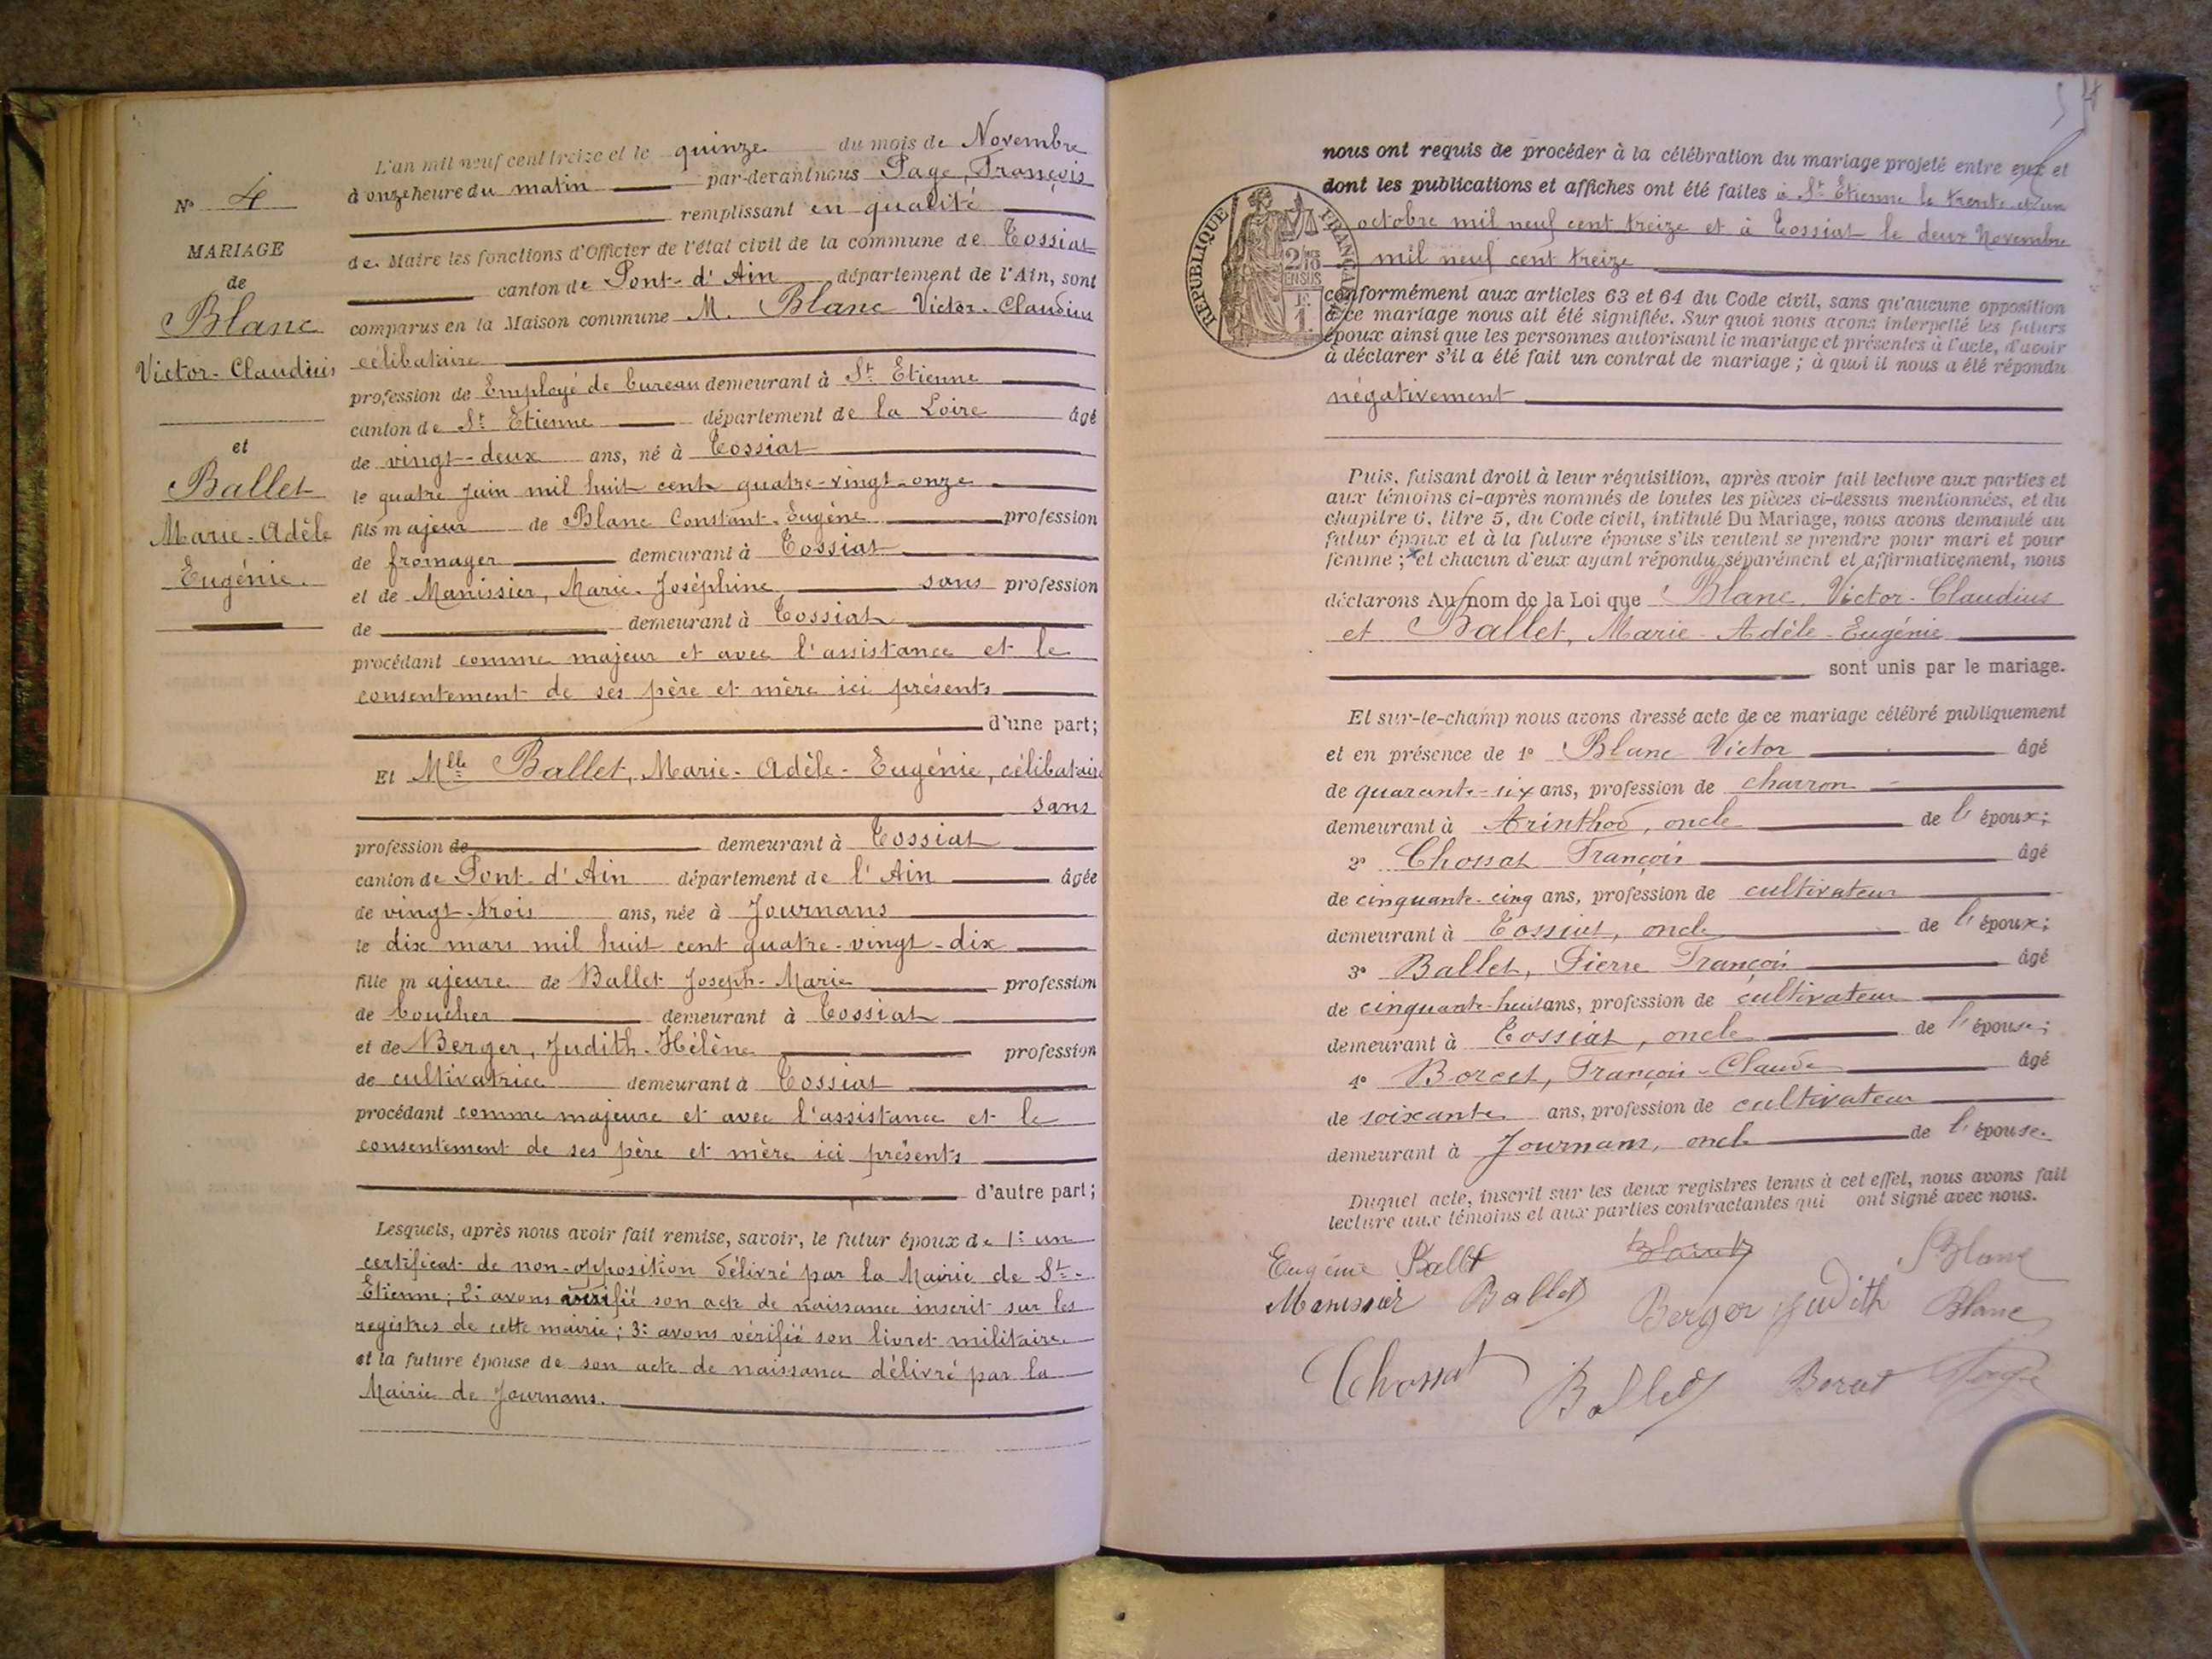 L'an mil neuf cent treize et le quinze du mois de Novembre
à onze heure du matin par-devant nous Page, François
remplissant en qualité
de Maire les fonctions d'Officier de l'état civil de la commune de Tossiat
canton de Pont-d'Ain département de l'Ain, sont
comparus en la Maison commune M. Blanc Victor-Claudius
célibataire
profession de Employé de bureau demeurant à St Etienne
canton de St Etienne département de la Loire âgé
de vingt-deux ans, né à Tossiat
le quatre juin mil huit cent quatre-vingt-onze
fils majeur de Blanc Constant-Eugène profession
de fromager demeurant à Tossiat
et de Manissier, Marie-Joséphine sans profession
de demeurant à Tossiat
procédant comme majeur et avec l'assistance et le
consentement de ses père et mère ici présents
d'une part;
Et Mlle Ballet, Marie-Adèle-Eugénie, célibataire
sans
profession de demeurant à Tossiat
canton de Pont-d'Ain département de l'Ain âgée
de vingt-trois ans, née à Journans
le dix mars mil huit cent quatre-vingt-dix
fille majeure de Ballet Joseph-Marie profession
de boucher demeurant à Tossiat
et de Berger, Judith-Hélène profession
de cultivatrice demeurant à Tossiat
procédant comme majeure et avec l'assistance et le
consentement de ses père et mère ici présents
d'autre part;
Lesquels, après nous avoir fait remise, savoir, le futur époux de 1° un
certificat de non-opposition délivré par la Mairie de St-
Etienne; 2° avons vérifié son acte de naissance inscrit sur les
registres de cette mairie; 3° avons vérifié son livret militaire
et la future épouse de son acte de naissance délivré par la
Mairie de Journans.
N° 4
MARIAGE
de
Blanc
Victor-Claudius
et
Ballet
Marie-Adèle
Eugénie.
nous ont requis de procéder à la célébration du mariage projeté entre eux et
dont les publications et affiches ont été faites à St Etienne le trente et un
octobre mil neuf cent treize et à Tossiat le deux Novembre
mil neuf cent treize
conformément aux articles 63 et 64 du Code civil, sans qu'aucune opposition
à ce mariage nous ait été signifiée. Sur quoi nous avons interpellé les futurs
époux ainsi que les personnes autorisant le mariage et présentes à l'acte, d'avoir
à déclarer s'il a été fait un contrat de mariage; à quoi il nous a été répondu
négativement
REPUBLIQUE FRANÇAISE
2/10 EN SUS
1F.
Puis, faisant droit à leur réquisition, après avoir fait lecture aux parties et
aux témoins ci-après nommés de toutes les pièces ci-dessus mentionnées, et du
chapitre 6, titre 5, du Code civil, intitulé Du Mariage, nous avons demandé au
futur époux et à la future épouse s'ils veulent se prendre pour mari et pour
femme; et chacun d'eux ayant répondu séparément et affirmativement, nous
déclarons Au nom de la Loi que Blanc, Victor-Claudius
et Ballet, Marie-Adèle-Eugénie
sont unis par le mariage.
Et sur-le-champ nous avons dressé acte de ce mariage célébré publiquement
et en présence de 1° Blanc Victor âgé
de quarante-six ans, profession de charron
demeurant à Arinthod, oncle de l'époux;
2° Chossat François âgé
de cinquante-cinq ans, profession de cultivateur
demeurant à Tossiat, oncle de l'époux;
3° Ballet, Pierre François âgé
de cinquante-huit ans, profession de cultivateur
demeurant à Tossiat, oncle de l'épouse;
4° Borcet, François-Claude âgé
de soixante ans, profession de cultivateur
demeurant à Journans, oncle de l'épouse.
Duquel acte, inscrit sur les deux registres tenus à cet effet, nous avons fait
lecture aux témoins et aux parties contractantes qui ont signé avec nous.
Eugénie Ballet Blanc
Manissier Ballet Berger Judith Blanc
Chossat Ballet Borcet Page